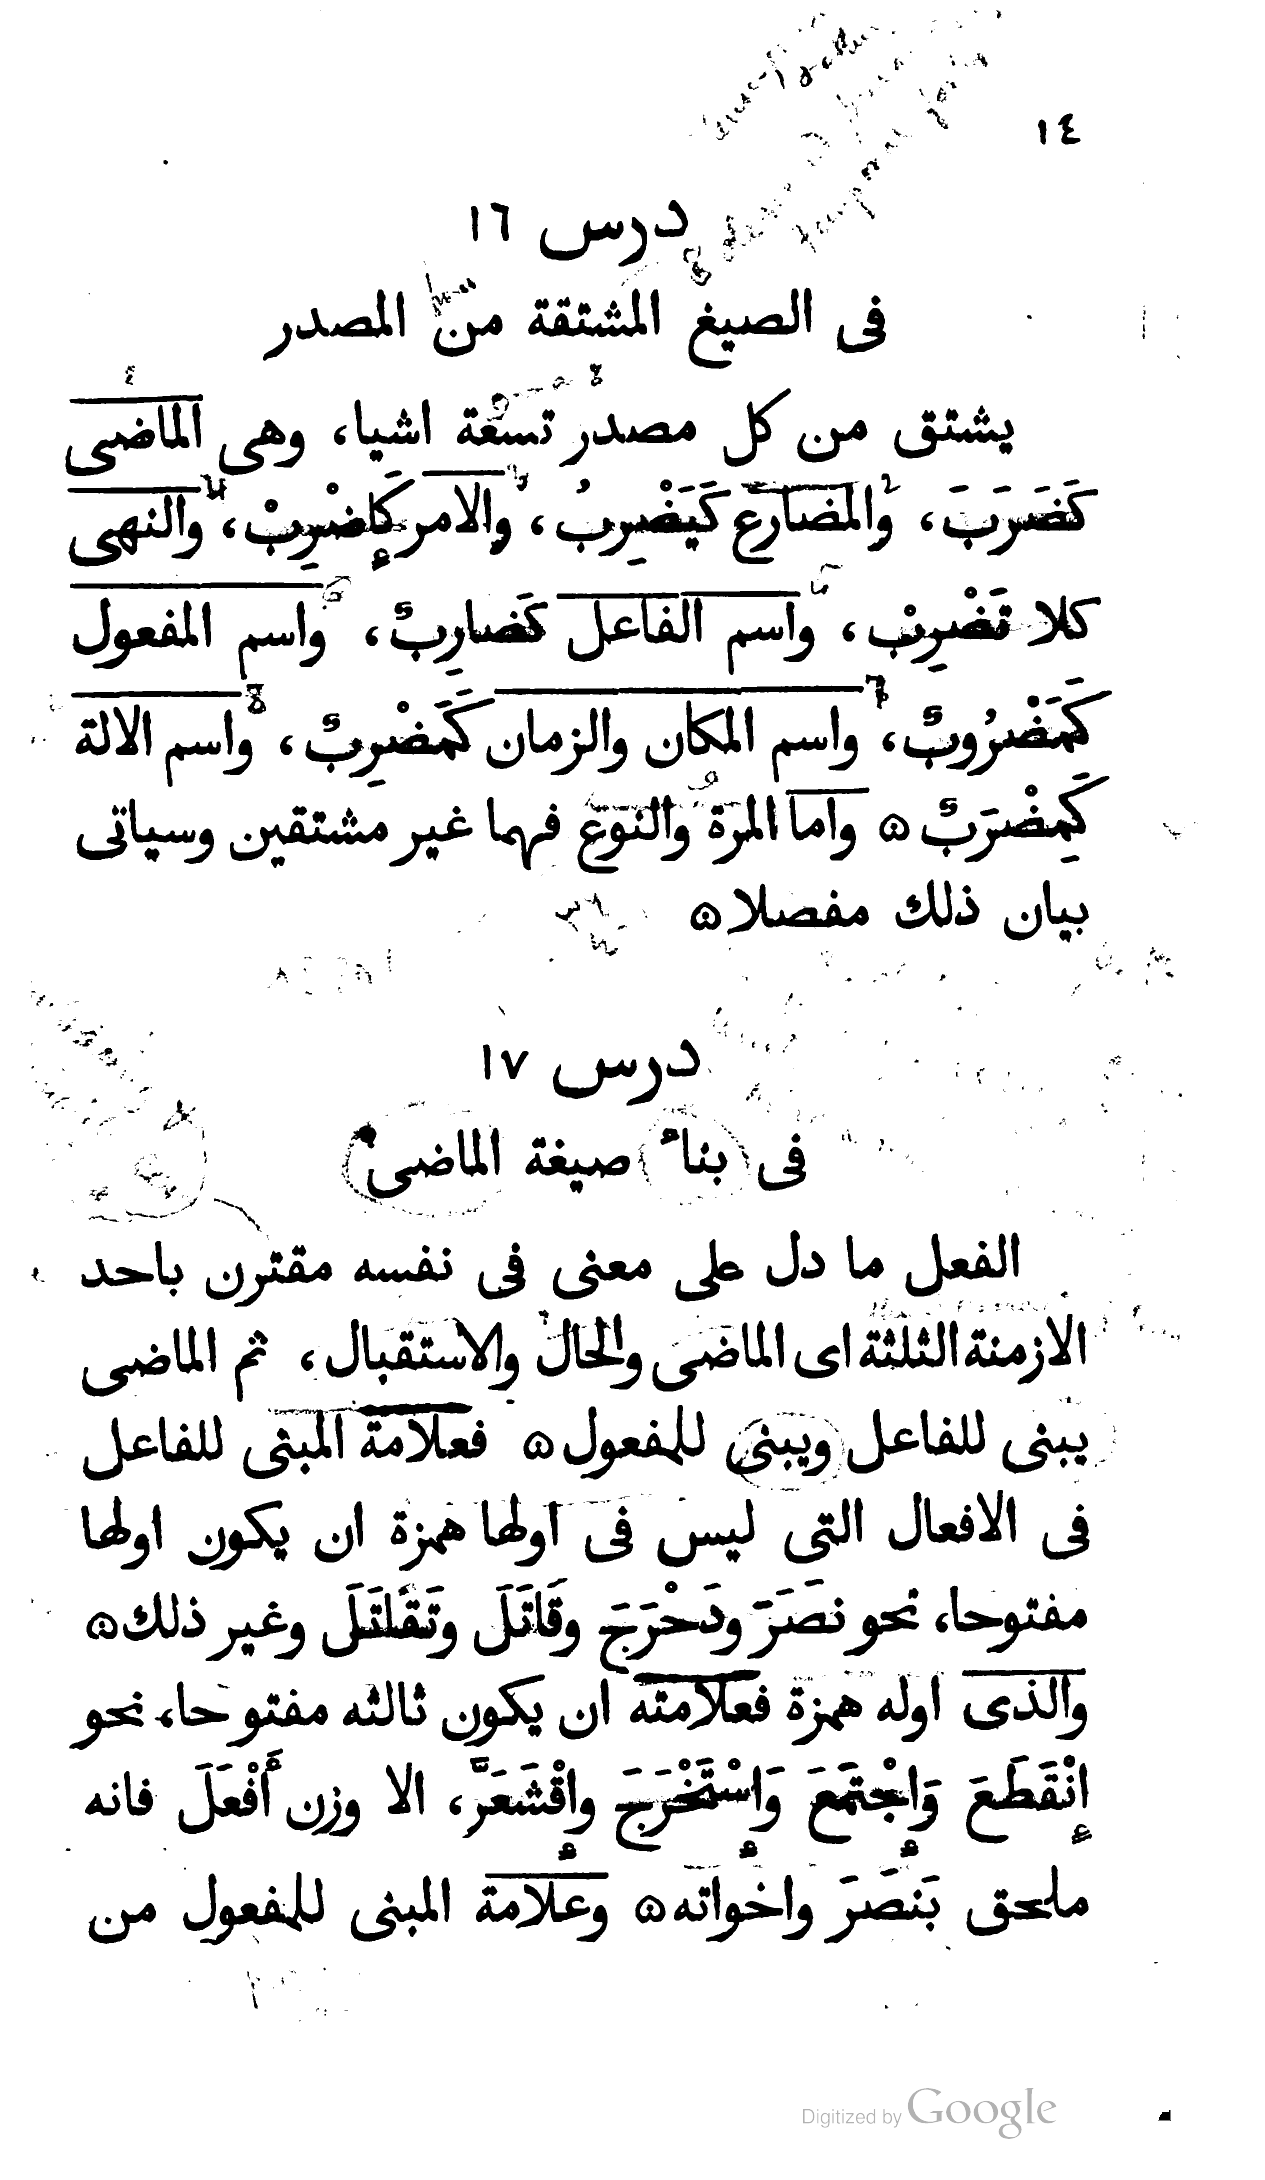 ١٤
درس ١٦
فى الصيغ المشتقة من المصدر
يشتق من كل مصدر تسعة اشيا، وهى الماضى
كَضَرَبَ، والمضارع كَيَضْرِبُ، والامر كَإِضْرِبْ، والنهى
كلا تَضْرِبْ، واسم الفاعل كَضارِبٌ، واسم المفعول
كَمَضْرُوبٌ، واسم المكان والزمان كَمَضْرِبٌ، واسم الالة
كَمِضْرَبٌ ۞ واما المرة والنوع فهما غير مشتقين وسياتى
بيان ذلك مفصلا ۞
درس ١٧
فى بناء صيغة الماضى
الفعل ما دل على معنى فى نفسه مقترن باحد
الازمنة الثلثة اى الماضى والحال والاستقبال، ثم الماضى
يبنى للفاعل ويبنى للمفعول ۞ فعلامة المبنى للفاعل
فى الافعال التى ليس فى اولها همزة ان يكون اولها
مفتوحا، نحو نصَرَ ودَحْرَجَ وقَاتَلَ وتَقَاتَلَ وغير ذلك ۞
والذى اوله همزة فعلامته ان يكون ثالثه مفتوحا، نحو
إِنْقَطَعَ وَإِجْتَمَعَ وَإِسْتَخْرَجَ وإِقْشَعَرَّ، الا وزن أَفْعَلَ فانه
ملحق بَنصَرَ واخواته ۞ وعلامة المبنى للمفعول من
Digitized by Google